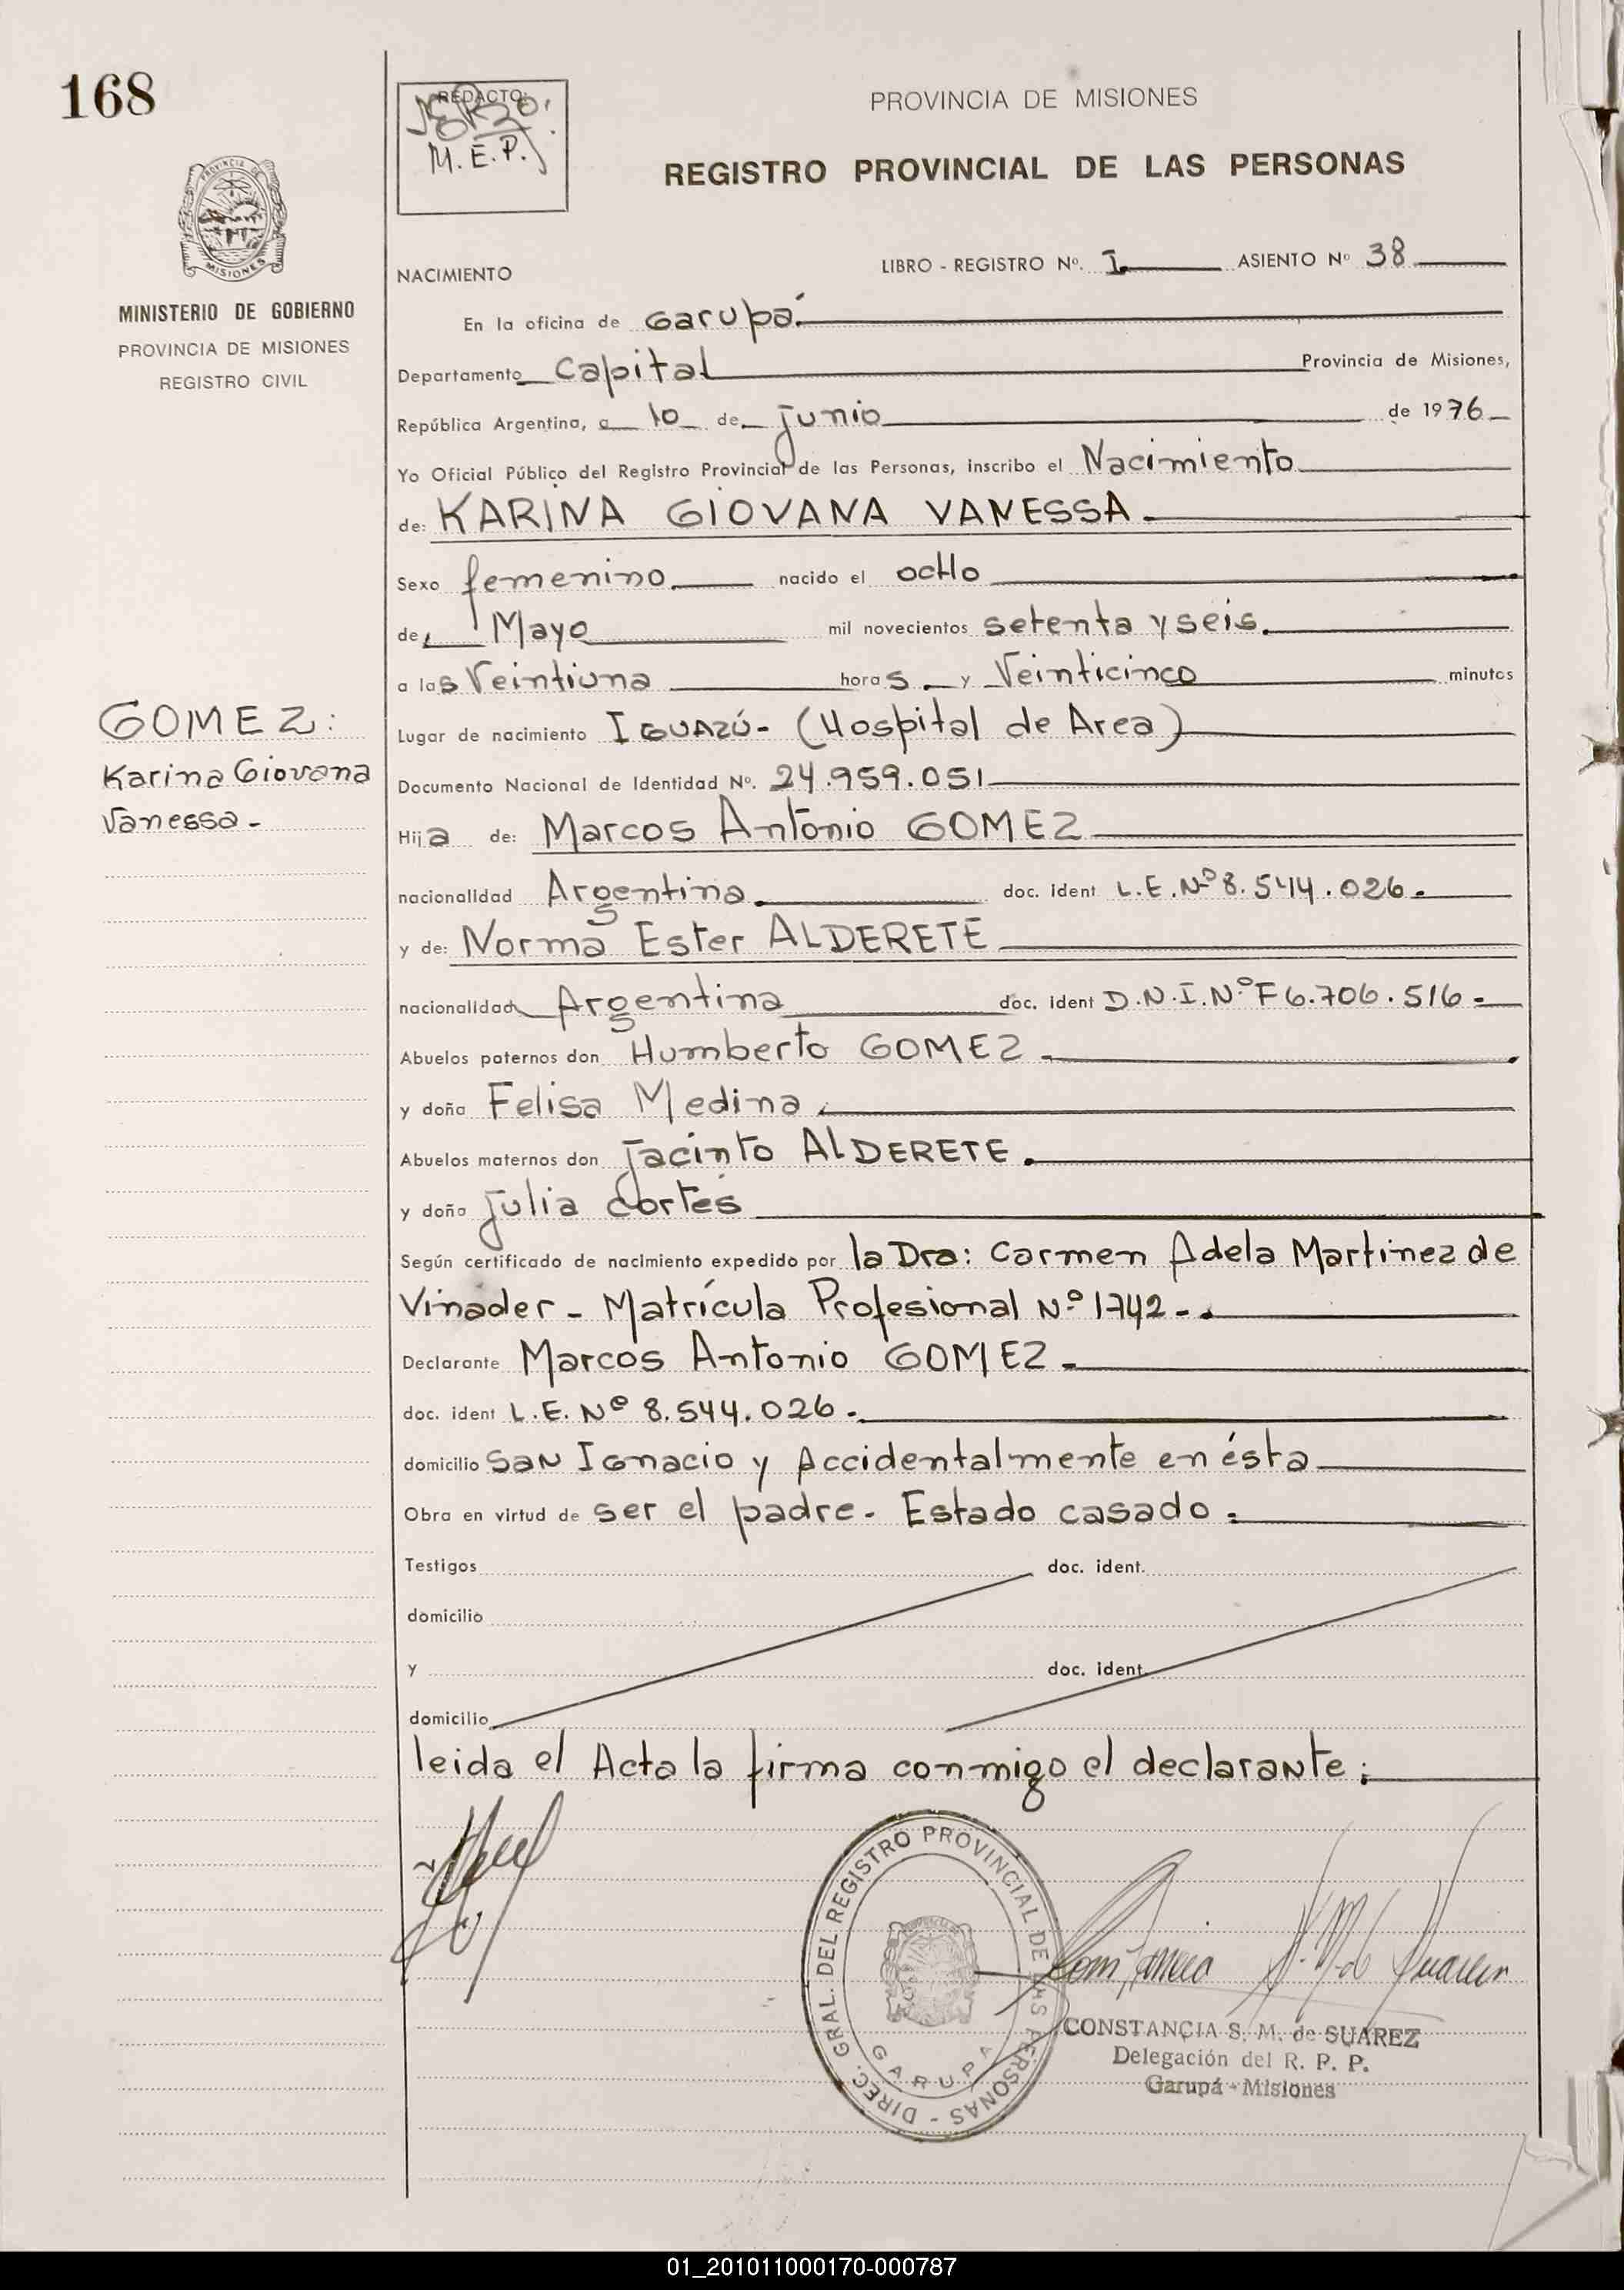 168
REDACTO:
M.E.P.
PROVINCIA DE MISIONES
REGISTRO PROVINCIAL DE LAS PERSONAS
PROVINCIA DE MISIONES
MINISTERIO DE GOBIERNO
PROVINCIA DE MISIONES
REGISTRO CIVIL
NACIMIENTO
LIBRO - REGISTRO Nº. I ASIENTO Nº 38
En la oficina de Garupá.
Departamento Capital Provincia de Misiones,
República Argentina, a 10 de junio de 1976
Yo Oficial Público del Registro Provincial de las Personas, inscribo el Nacimiento
de: KARINA GIOVANA VANESSA
Sexo femenino nacido el ocHo
de Mayo mil novecientos setenta y seis.
a las Veintiuna horas y Veinticinco minutos
GOMEZ:
Karina Giovana
Vanessa -
Lugar de nacimiento IGUAZÚ - (Hospital de Area)
Documento Nacional de Identidad Nº. 24.959.051
Hija de: Marcos Antonio GOMEZ
nacionalidad Argentina. doc. ident L.E.Nº 8.544.026.
y de: Norma Ester ALDERETE
nacionalidad Argentina doc. ident D.N.I.Nº F6.706.516.
Abuelos paternos don Humberto GOMEZ
y doña Felisa Medina
Abuelos maternos don Jacinto ALDERETE.
y doña Julia Cortés
Según certificado de nacimiento expedido por la Dra: Carmen Adela Martinez de
Vinader - Matrícula Profesional Nº 1742-.
Declarante Marcos Antonio GOMEZ
doc. ident L.E. Nº 8.544.026.
domicilio San Ignacio y Accidentalmente en ésta
Obra en virtud de ser el padre. Estado casado.
Testigos doc. ident.
domicilio
y doc. ident.
domicilio
leida el Acta la firma conmigo el declarante;
DIREC. GRAL. DEL REGISTRO PROVINCIAL DE LAS PERSONAS -
GARUPA
CONSTANCIA S. M. de SUAREZ
Delegación del R. P. P.
Garupá - Misiones
01_201011000170-000787